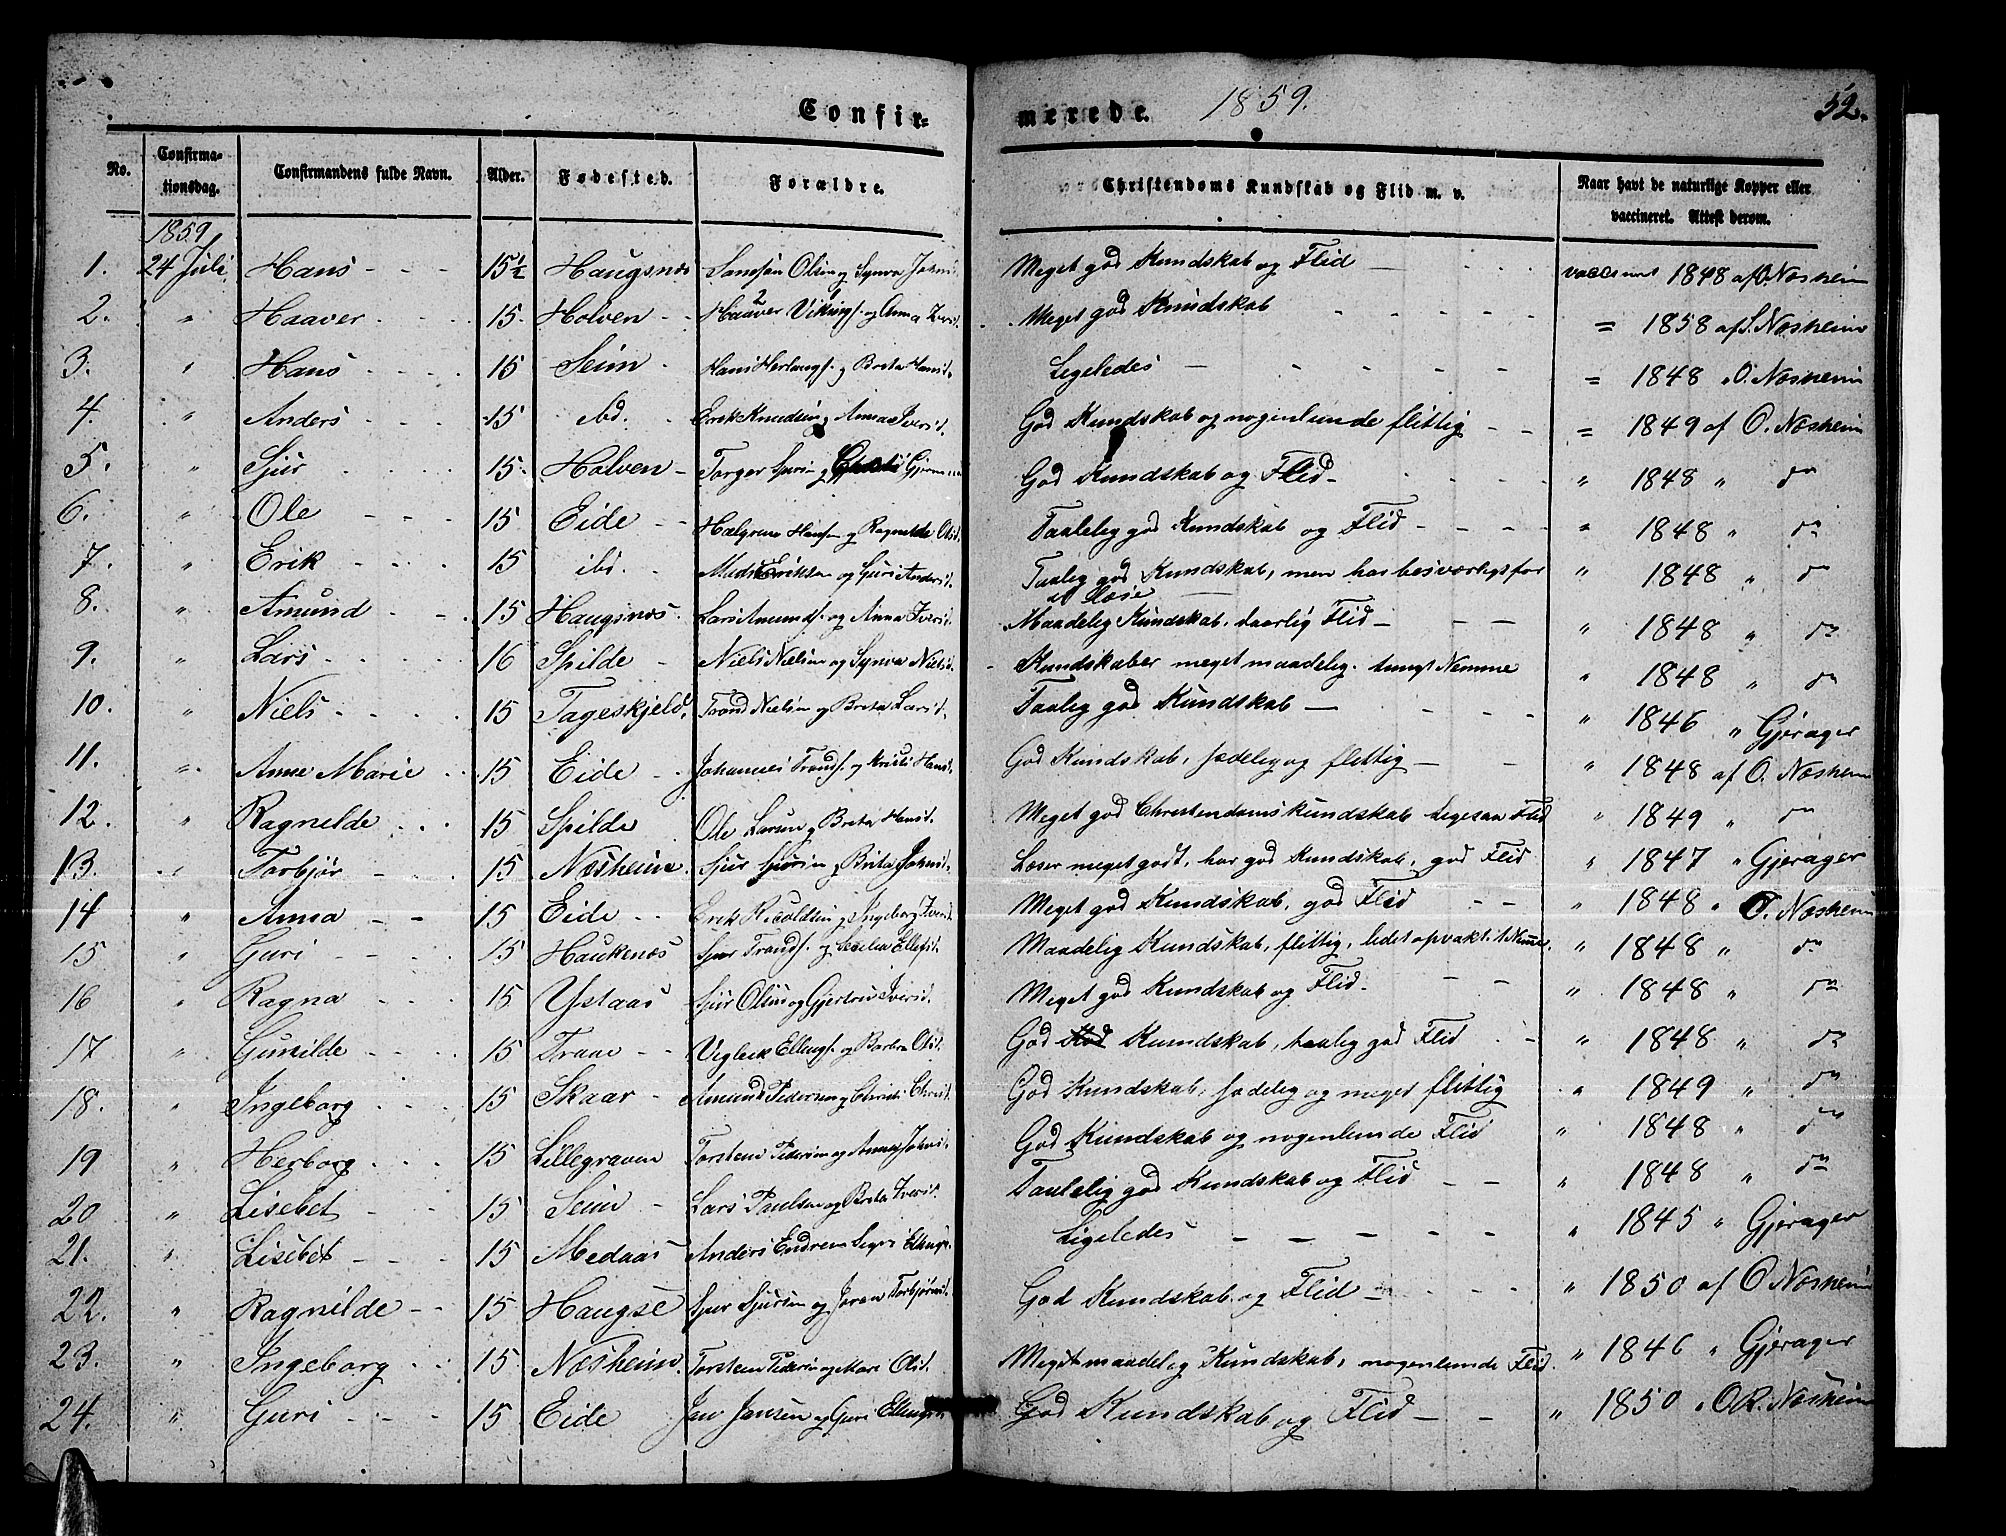 Confir=
merede. 1859. 52.
No. Confirma-tionsdag. Confirmandens fulde Navn. Alder. Fødested. Forældre. Christendoms Kundskab og Flid m. v. Naar havt de naturlige Kopper eller vaccineret. Attest derom.
1859
1. 24 Juli Hans 15½ Haugsnæs og Synva Meget god Kundskab og Flid 1848 af O. Næsheim
2. " Haaver 15 Holven Haaver Vikings. og Anna Iversd. Meget god Kundskab = 1858 af S. Næsheim
3. " Hans 15 Seim Hans Herlaugs. og Brita Hansd. Ligeledes = 1848 " O. Næsheim
4. " Anders 15 ibd. Erik Knudsen og Anna Iversd. God Kundskab og nogenlunde flittig = 1849 af O. Næsheim
5. " Sjur 15 Holven Torger og God Kundskab og Flid " 1848 " do
6. " Ole 15 Eide og Ragnilde Olsd. Taalelig god Kundskab og Flid " 1848 " do
7. " Erik 15 ibd. Mads Eriksen og Guri Andersd. Taalig god Kundskab, men har besværligt for at læse " 1848 " do
8. " Amund 15 Haugsnæs Lars Amunds. og Anna Iversd. Maadelig Kundskab, daarlig Flid " 1848 " do
9. " Lars 16 Spilde Niels Nielsen og Synva Nielsd. Kundskaber meget maadelig. tungt Nemme " 1848 " do
10. " Niels 15 Tageskjeld. Trond Nielsen og Brita Larsd. Taalig god Kundskab " 1846 " Gjerager
11. " Anne Marie 15 Eide Johannes Tronds. og Kristi Hansd. God Kundskab, sædelig og flittig " 1848 af O. Næsheim
12. " Ragnilde 15 Spilde Ole Larsen og Brita Hansd. Meget god Christendomskundskab ligesaa Flid " 1849 " do
13. " Torbjør 15 Næsheim. Sjur Sjursen og Brita Johnsd. Læser meget godt, har god Kundskab, god Flid " 1847 " Gjerager
14 " Anna 15 Eide Erik og Ingeborg Iversd. Meget god Kundskab, god Flid " 1848 " O. Næsheim
15 " Guri 15 Haukenæs Sjur Tronds. og Cecilia Ellefsd. Maadelig Kundskab, flittig, lidet opvakt " 1848 " do
16 " Ragna 15 Ystaas Sjur Olsen og Gjertrud Iversd. Meget god Kundskab og Flid " 1848 " do
17 " Gunilde 15 Traae Vigleik Ellings. og Barbra Olsd. God Kundskab, taalig god Flid " 1848 " do
18. " Ingeborg 15 Skaar Amund Pedersen og God Kundskab, sædelig og meget flittig " 1849 " do
19 " Herborg 15 Lillegraven Torsten Pedersen og Anna Johnsd. God Kundskab og nogenlunde Flid " 1848 " do
20 " Lisebet 15 Seim Lars Paulsen og Brita Iversd. Taalelig god Kundskab og Flid " 1848 " do
21. " Lisebet 15 Medaas Anders Endresen Ellingsd. Ligeledes " 1845 " Gjerager
22. " Ragnilde 15 Haugse Sjur Sjursen og Joran Torbjørnsd. God Kundskab og Flid " 1850 af O Næsheim
23. " Ingeborg 15 Næsheim. Torsten Pedersen og Mari Olsd. Meget maadelig Kundskab, nogenlunde Flid. " 1846 " Gjerager
24. " Guri 15 Eide Jan Jansen og Guri Ellingsd. God Kundskab og Flid " 1850 " O R. Næsheim